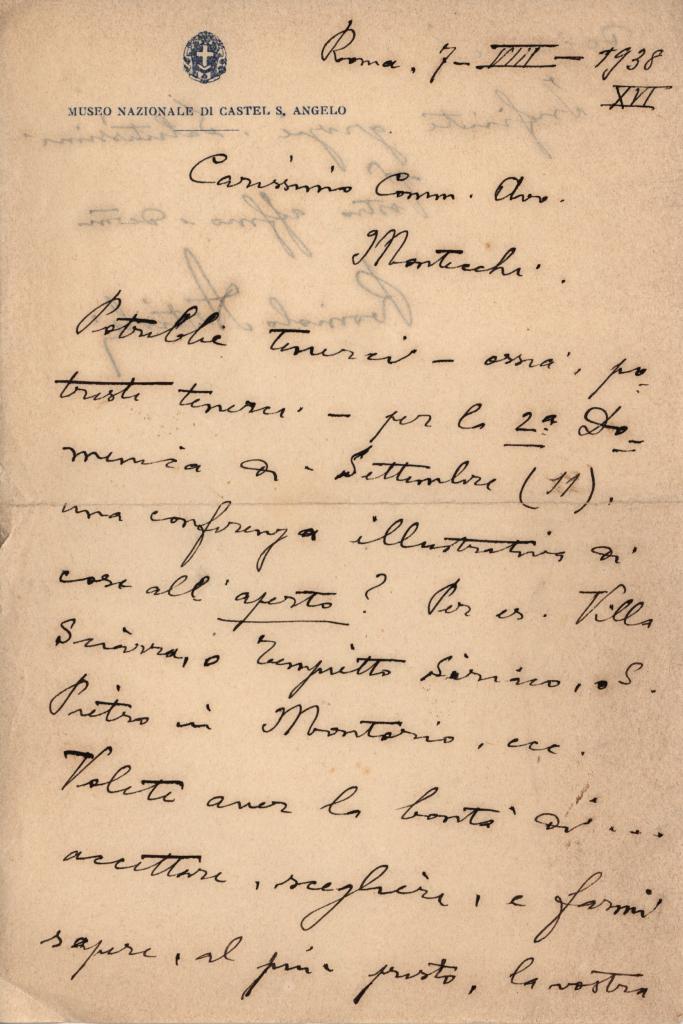 Roma, 7 - VIII - 1938
XVI
MUSEO NAZIONALE DI CASTEL S. ANGELO
Carissimo Comm. Avv.
Montecchi.
Potrebbe tenerci - ossia, po-
treste tenerci - per la 2ª Do-
menica di Settembre (11),
una conferenza illustrativa di
cose all'aperto? Per es. Villa
Sciarra, o Tempietto Siriaco, o S.
Pietro in Montorio, ecc.
Volete aver la bontà di...
accettare, scegliere, e farmi
sapere, al più presto, la vostra